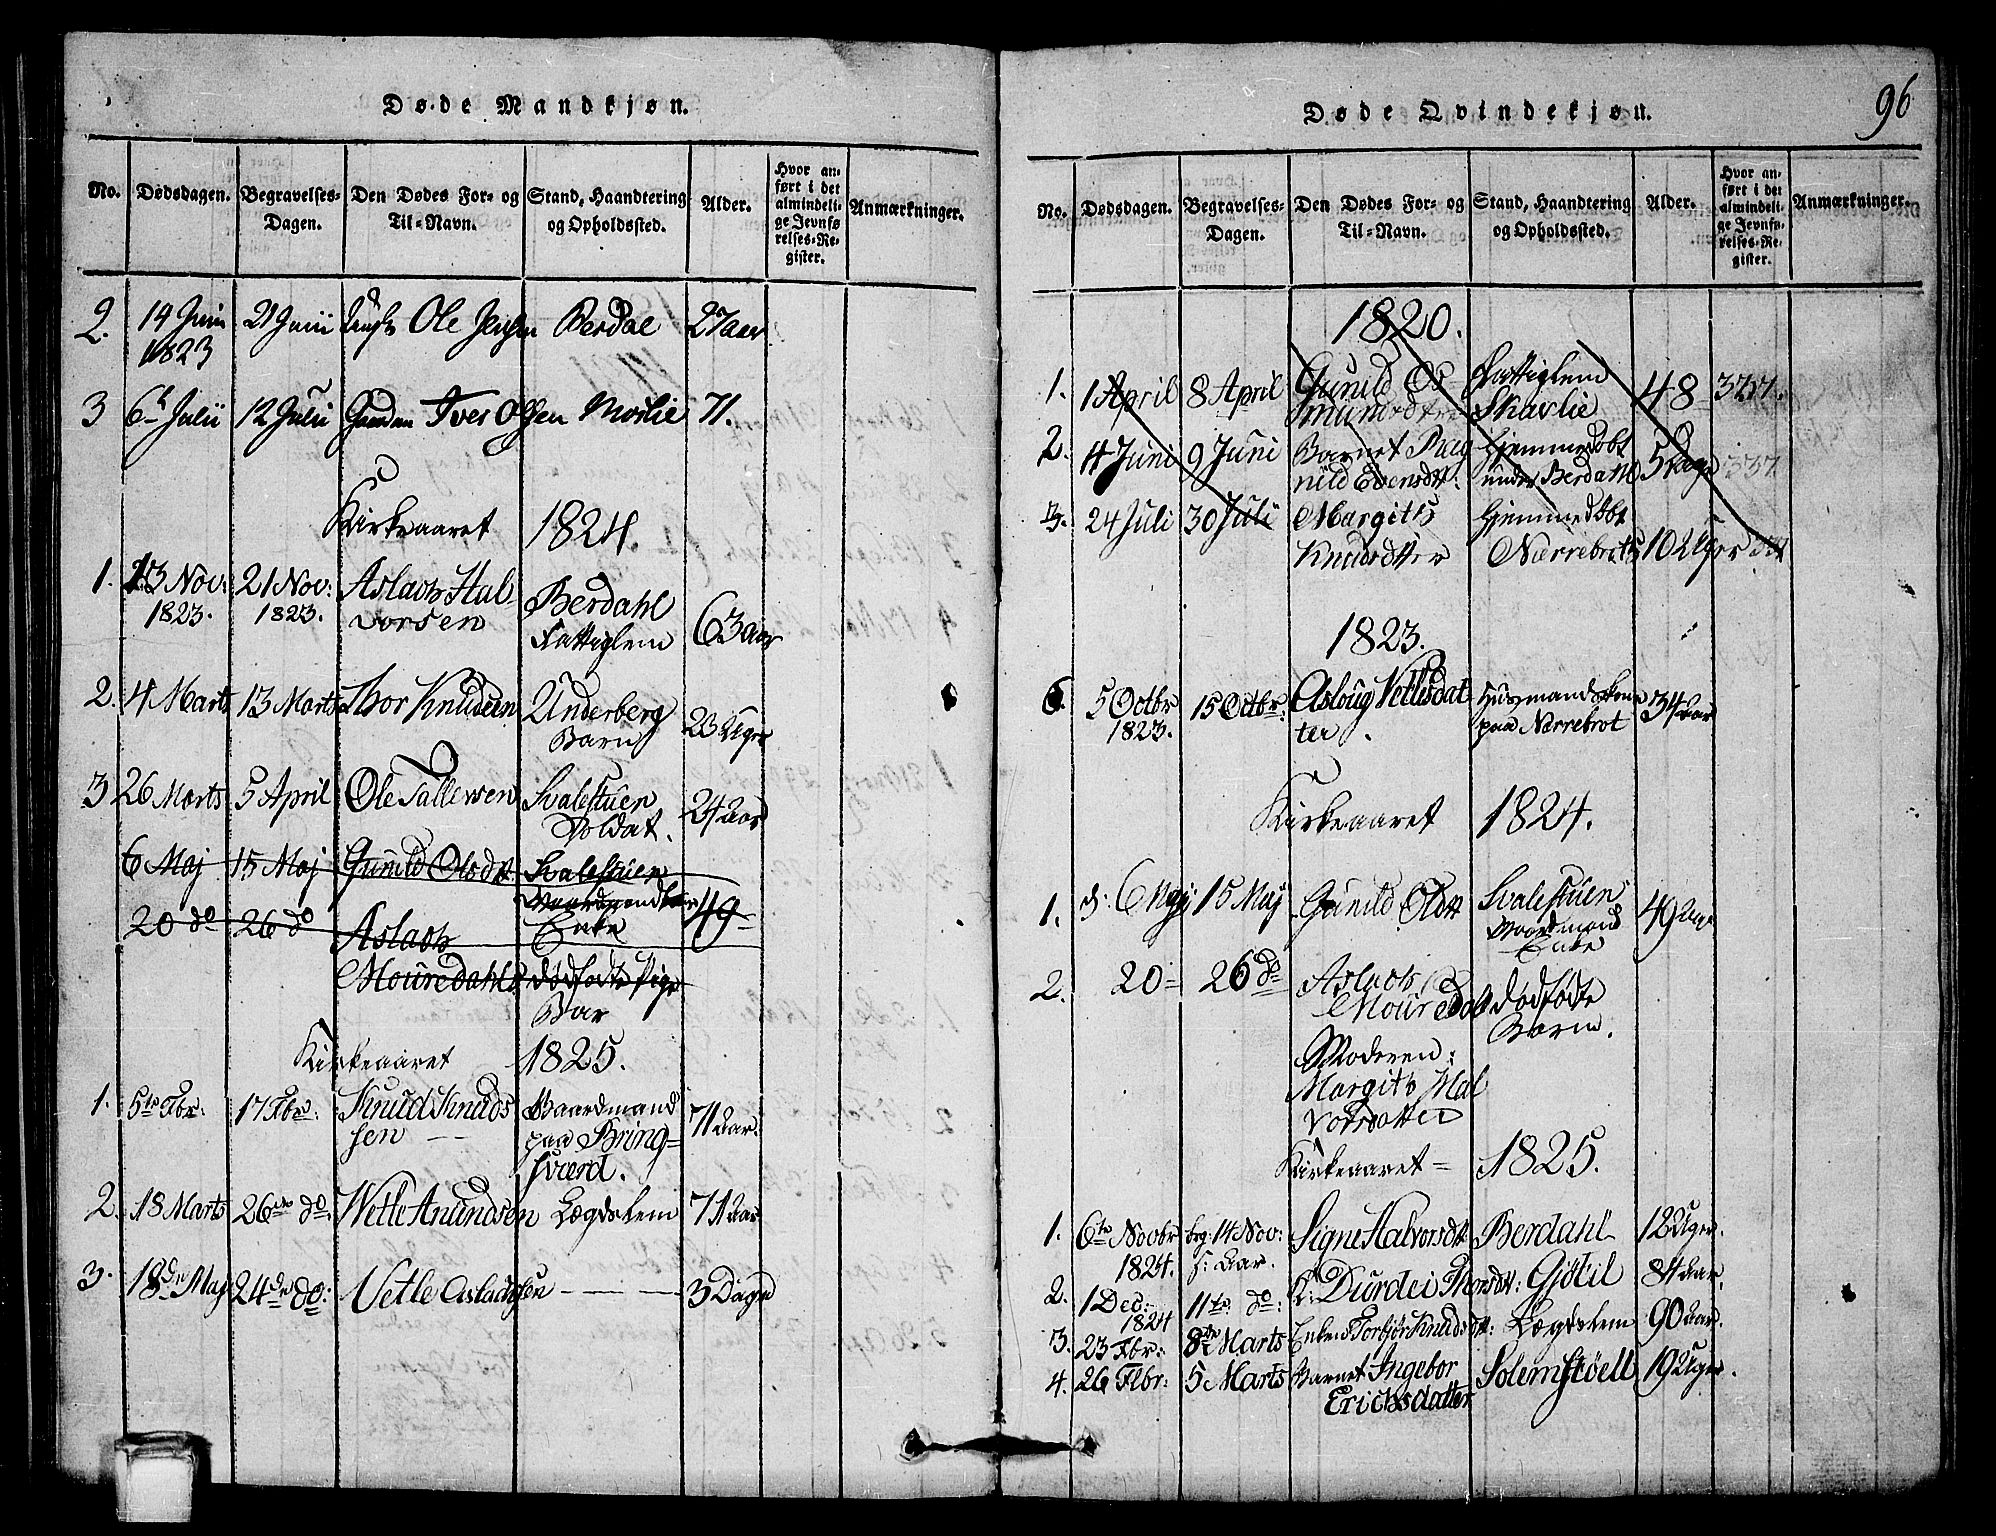 Døde Mandkjøn.
No. Dødsdagen. Begravelses-Dagen. Den Dødes For- og Til-Navn. Stand, Haandtering og Opholdssted. Alder. Hvor anført i det almindelige Jevnførelses-Register. Anmærkninger.
2. 14 Junii 1823 21 Junii Ole Jensen Berdal 27 aar
3 6t Julii 12 Julii Iver Olsen Moslie 71.
Kirkeaaret 1824.
1. 13 Nov: 1823. 21 Nov: 1823. Aslach Halvorsen Berdahl Fattiglem 63 aar
2. 4 Marts 13 Marts Thor Knudsen Underberg Barn 23 Uger
3 26 Marts 5 April Ole Tallevsen Svalestuen Soldat. 24 Aar
6 Maj 15 Maj Gunild Olsdtt Svalestuen Enke 49
20 do 26 do Aslach Mouredahls dødfødte Pige Bar
Kirkeaaret 1825.
1. 5te Fbr: 17 Fbr: Knud Knudssen Gaardmand paa Bringsværd. 71 Aar.
2. 18 Marts 26de do. Vetle Anundsen Lægdslem 71 Aar
3. 18de Maj 24de do: Vetle Aslachsen — — — 3 Dage
Døde Qvindekjøn.
96
No. Dødsdagen. Begravelses-Dagen. Den Dødes For- og Til-Navn. Stand, Haandtering og Opholdssted. Alder. Hvor anført i det almindelige Jevnførelses-Register. Anmærkninger.
1820.
1. 1 April 8 April Gunild Osmundsdtr Fattiglem Skarlie 48
2. 4 Juni 9 Juni Barnet Ragnild Evensdtt. Hjemmedøbt under Berdahl 5 Dage 337.
3. 24 Juli 30 Juli Margith Knudsdtter Hjemmedøbt Nørrebrot 10 Uger
1823.
6. 5 Octbr 1823. 15 Octbr: Asloug Vetlesdatter. Husmandskone paa Nørrebrot 34 Aar
Kirkeaaret 1824.
1. d. 6 Maj 15 Maj Gunild Olsdtt Svalestuen Gaardmands Enke 49 Aar
2. 20 26 do Aslach Mouredahls dødfødte Barn.
Moderen: Margith Halvorsdatter
Kirkeaaret 1825.
1. 6te Novbr 1824. brg: 14 Nov: f: Aar. Signe Halvorsdtt Berdahl 12 Uger.
2. 1 Dec: 1824 11te do: K: Durdei Thorsdtt: Gjøtil 84 Aar.
3. 23 Fbr: 8de Marts Enken Torbjør Knudsdtt: Lægdslem 90 Aar.
4. 26 Fbr: 5 Marts Barnet Ingebor Ericksdatter Solemstøell 19 Uger.